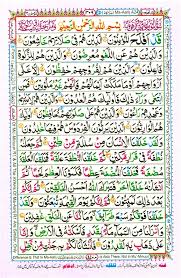 بِسْمِ اللهِ الرَّحْمٰنِ الرَّحِيْمِ
قَدْ اَفْلَحَ الْمُؤْمِنُوْنَ الَّذِيْنَ هُمْ فِيْ صَلَاتِهِمْ خٰشِعُوْنَ
وَالَّذِيْنَ هُمْ عَنِ اللَّغْوِ مُعْرِضُوْنَ وَالَّذِيْنَ هُمْ لِلزَّكٰوةِ
فٰعِلُوْنَ وَالَّذِيْنَ هُمْ لِفُرُوْجِهِمْ حٰفِظُوْنَ اِلَّا عَلٰٓى
اَزْوَاجِهِمْ اَوْ مَا مَلَكَتْ اَيْمَانُهُمْ فَاِنَّهُمْ غَيْرُ مَلُوْمِيْنَ فَمَنِ
ابْتَغٰى وَرَآءَ ذٰلِكَ فَاُولٰٓئِكَ هُمُ الْعٰدُوْنَ وَالَّذِيْنَ هُمْ
لِاَمٰنٰتِهِمْ وَعَهْدِهِمْ رٰعُوْنَ وَالَّذِيْنَ هُمْ عَلٰى صَلَوٰتِهِمْ يُحَافِظُوْنَ
اُولٰٓئِكَ هُمُ الْوٰرِثُوْنَ الَّذِيْنَ يَرِثُوْنَ الْفِرْدَوْسَ هُمْ فِيْهَا
خٰلِدُوْنَ وَلَقَدْ خَلَقْنَا الْاِنْسَانَ مِنْ سُلٰلَةٍ مِّنْ طِيْنٍ ثُمَّ جَعَلْنٰهُ
نُطْفَةً فِيْ قَرَارٍ مَّكِيْنٍ ثُمَّ خَلَقْنَا النُّطْفَةَ عَلَقَةً فَخَلَقْنَا
الْعَلَقَةَ مُضْغَةً فَخَلَقْنَا الْمُضْغَةَ عِظٰمًا فَكَسَوْنَا الْعِظٰمَ
لَحْمًا ثُمَّ اَنْشَاْنٰهُ خَلْقًا اٰخَرَ فَتَبٰرَكَ اللهُ اَحْسَنُ الْخٰلِقِيْنَ ثُمَّ
اِنَّكُمْ بَعْدَ ذٰلِكَ لَمَيِّتُوْنَ ثُمَّ اِنَّكُمْ يَوْمَ الْقِيٰمَةِ تُبْعَثُوْنَ
وَلَقَدْ خَلَقْنَا فَوْقَكُمْ سَبْعَ طَرَآئِقَ وَمَا كُنَّا عَنِ الْخَلْقِ غٰفِلِيْنَ
وَاَنْزَلْنَا مِنَ السَّمَآءِ مَآءً بِقَدَرٍ فَاَسْكَنّٰهُ فِي الْاَرْضِ وَاِنَّا
عَلٰى ذَهَابٍ بِهٖ لَقٰدِرُوْنَ فَاَنْشَاْنَا لَكُمْ بِهٖ جَنّٰتٍ مِّنْ نَّخِيْلٍ